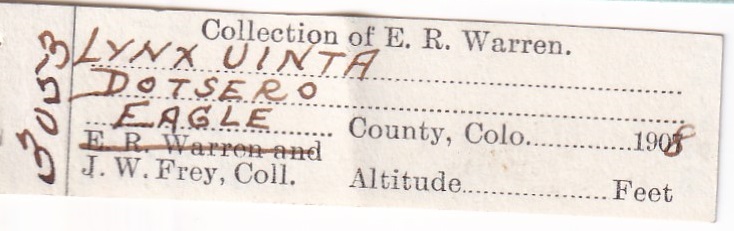 3053
Collection of E. R. Warren.
LYNX UINTA
DOTSERO
EAGLE County, Colo.............1908
E. R. Warren and
J. W. Frey, Coll. Altitude..................Feet